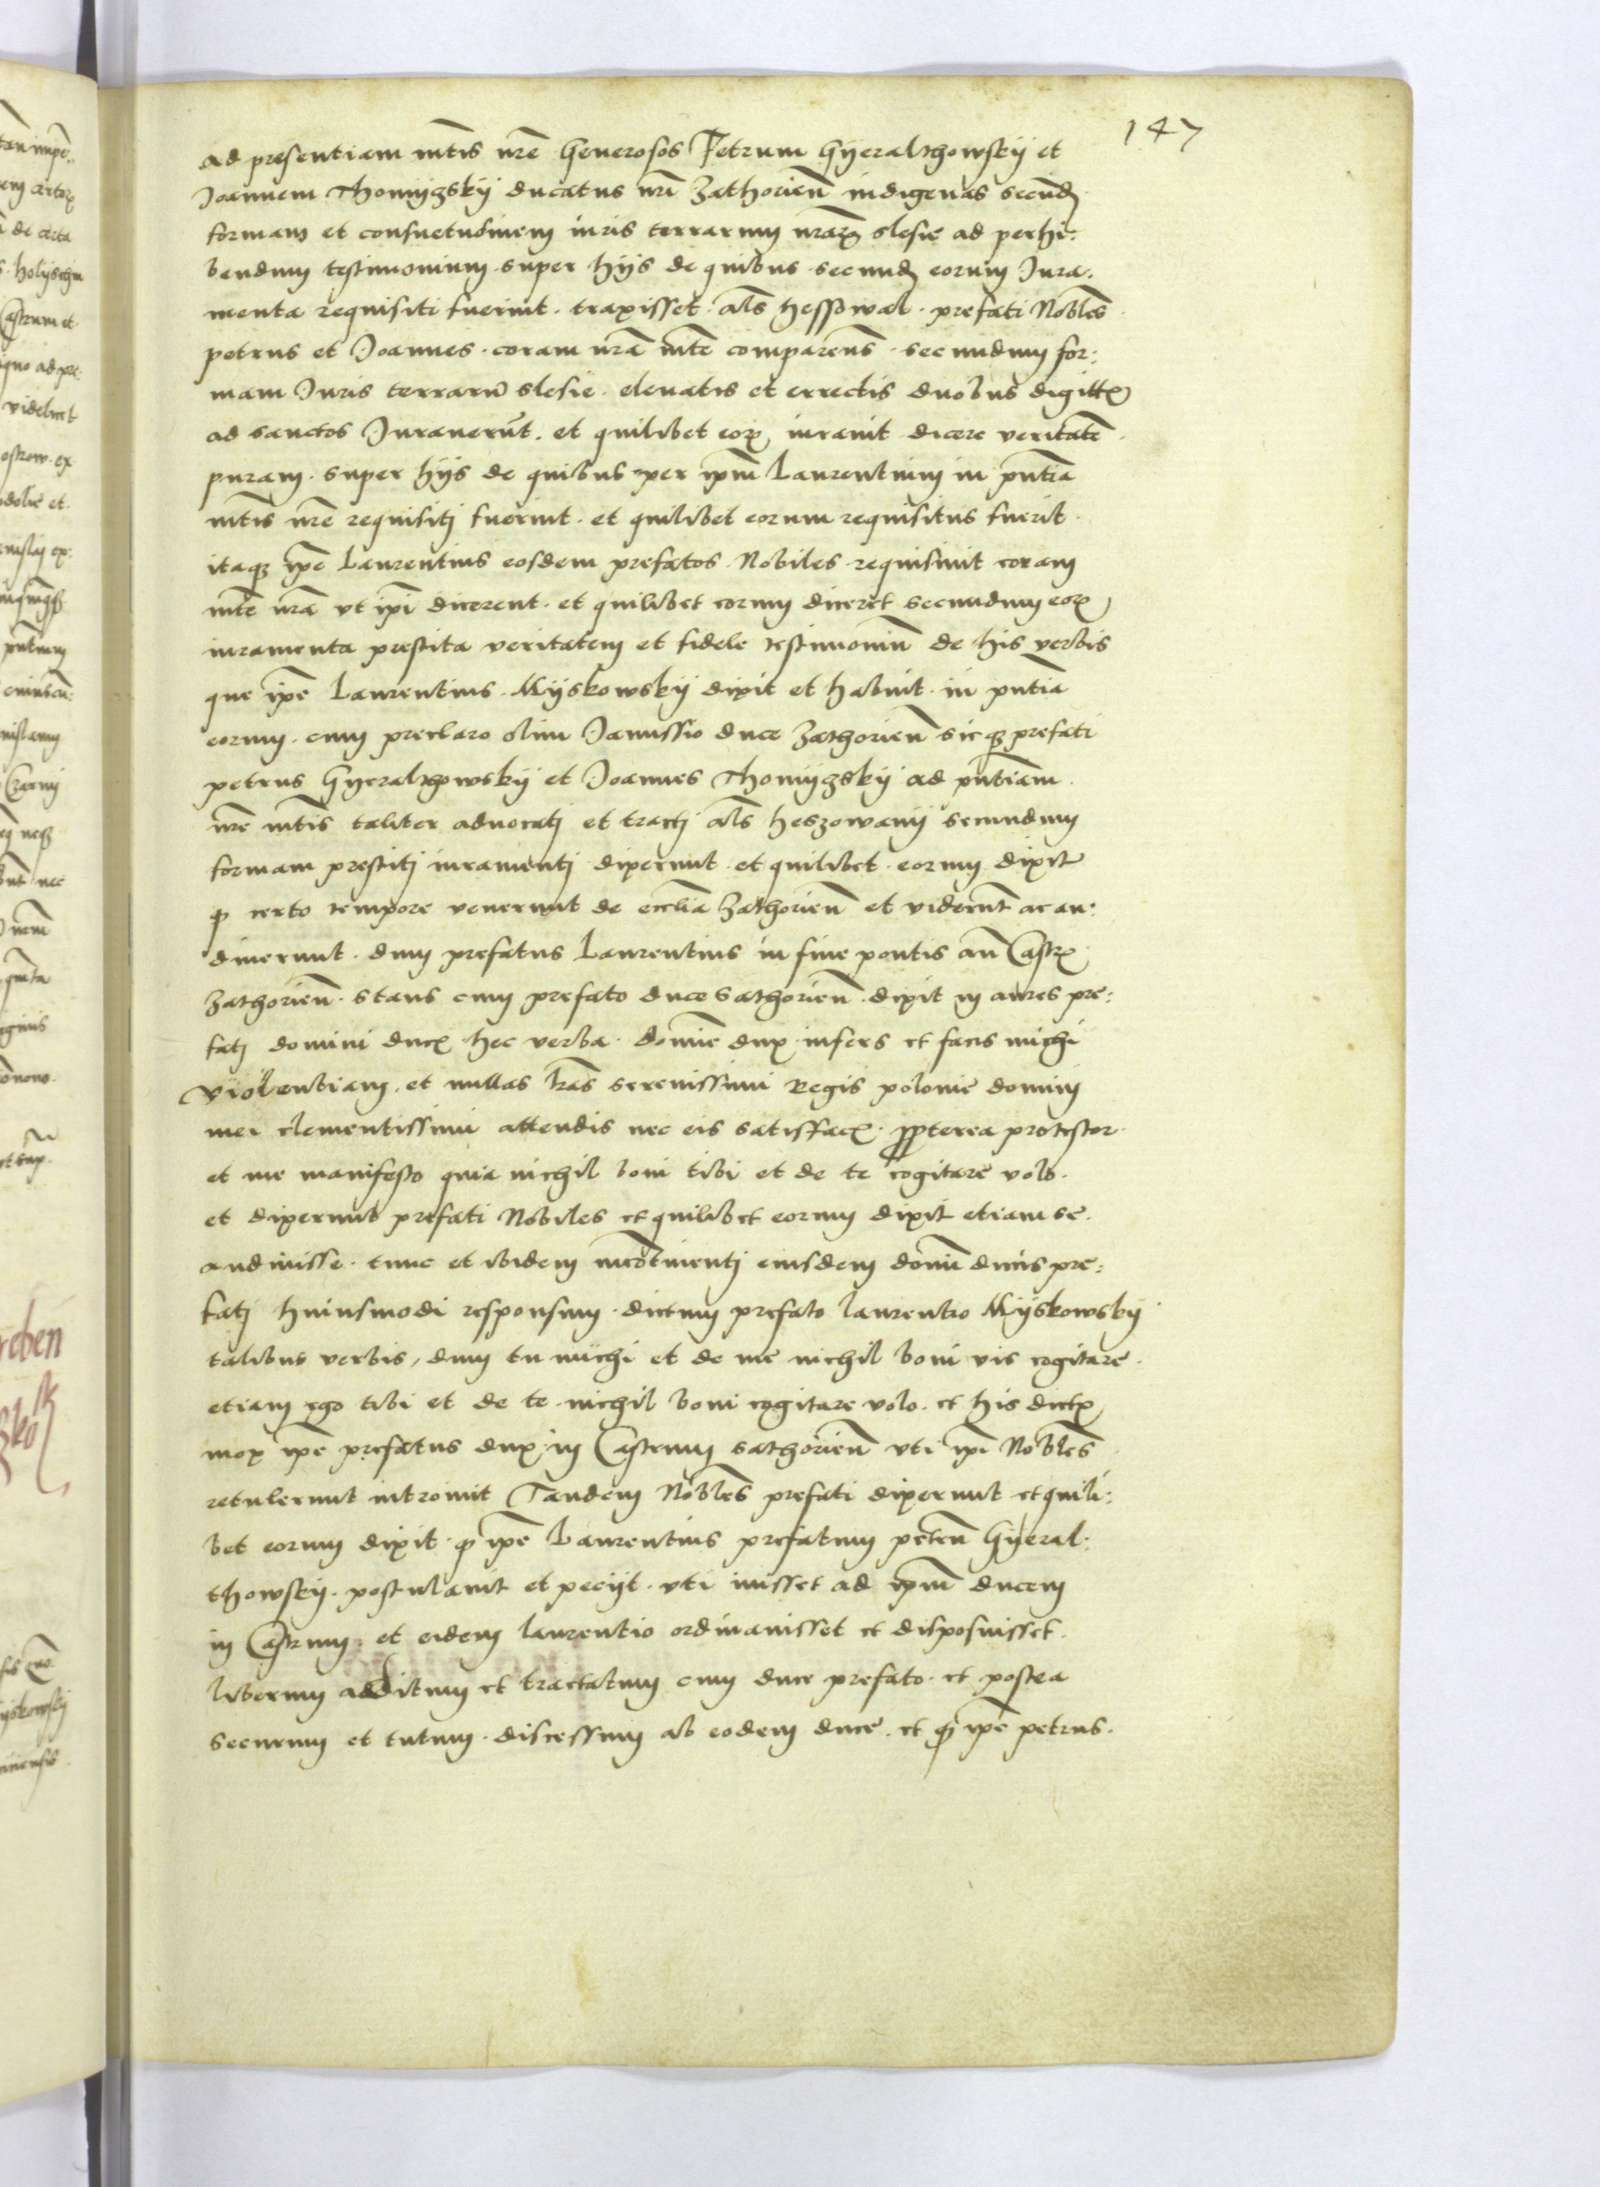 147
ad presentiam mtis nr̄e Generosos Petrum Gyeralthowskij et
Joannem Thomyzskij ducatus nr̄i Zathorien̄ indigenas secund̄
formam et consuetudinem iuris terrarum nr̄ar̄ slesie ad perhi:
bendum testimonium super hijs de quibus secund̄ eorum Jura:
menta requisiti fuerint. traxisset als̄ hessowal. prefati Nobles̄
petrus et Joannes. coram nr̄a mt̄e comparen̄s. secundum for:
mam Juris terrarū slesie. eleuatis et errectis duobus digitt̄
ad sanctos Juraverūt. et quilibet eor̄ iurauit dicere veritatē.
puram. super hijs de quibus per ip̄m Laurentium in pn̄tia
mt̄is nr̄e requisitj fuerint. et quilibet eorum requisitus fuerit.
itaq̨ ip̄e Laurentius eosdem prefatos Nobiles requisiuit coram
mt̄e nr̄a vt ip̄i dicerent. et quilibet eorum diceret secundum eor̄
iuramenta prestita veritatem et fidele testimoniū de his verbis
que ip̄e Laurentius. Myskowskij dixit et habuit. in pn̄tia
eorum. cum preclaro olim Janussio duce Zathorien̄ sicq̨ prefati
petrus Gyeralthowskij et Joannes Thomyzskij ad pn̄tiam.
nr̄e mt̄is taliter aduocatj et tractj als̄ heszowanij secundum
formam prestitj iuramentj dixerunt. et quilibet. eorum dixit
q̨ certo tempore venerunt de eccl̄ia Zathorien̄ et viderūt ac au:
diuerunt. dum prefatus Laurentius in fine pontis an̄ Castr̄.
Zathorien̄. stans cum prefato duce sathorien̄. dixit in aures pre:
fatj domini ducz̄ hec verba. domīe dux infers et facis michi
violentiam. et nullas lr̄as serenissimi Regis polonie domini
mei clementissimi attendis nec eis satisfacz̄. propterea protestor.
et me manifesto quia nichil boni tibi et de te cogitare volo.
et dixerunt prefati Nobiles et quilibet eorum dixit etiam se.
audiuisse. tunc et ibidem incōtinentj eiusdem domī ducis pre:
fatj huiusmodi responsum. dictum prefato laurentio Myskowskij
talibus verbis, dum tu michi et de me nichil boni vis cogitare.
etiam ego tibi et de te nichil boni cogitare volo. et his dictz̄
mox ip̄e prefatus dux in Castrum sathorien̄ vti ip̄i Nobles̄
retulerunt introiuit Tandem Nobles̄ prefati dixerunt et quili:
bet eorum dixit. q̨ ip̄e Laurentius prefatum petrū Gyeral:
thowskij. postulauit et pecijt. vti iuisset ad ip̄m ducem
in Castrum. et eidem laurentio ordinauisset et disposuisset.
liberum additum et tractatum cum duce prefato. et postea
securum et tutum. discessum ab eodem duce. et q̨ ip̄e petrus.